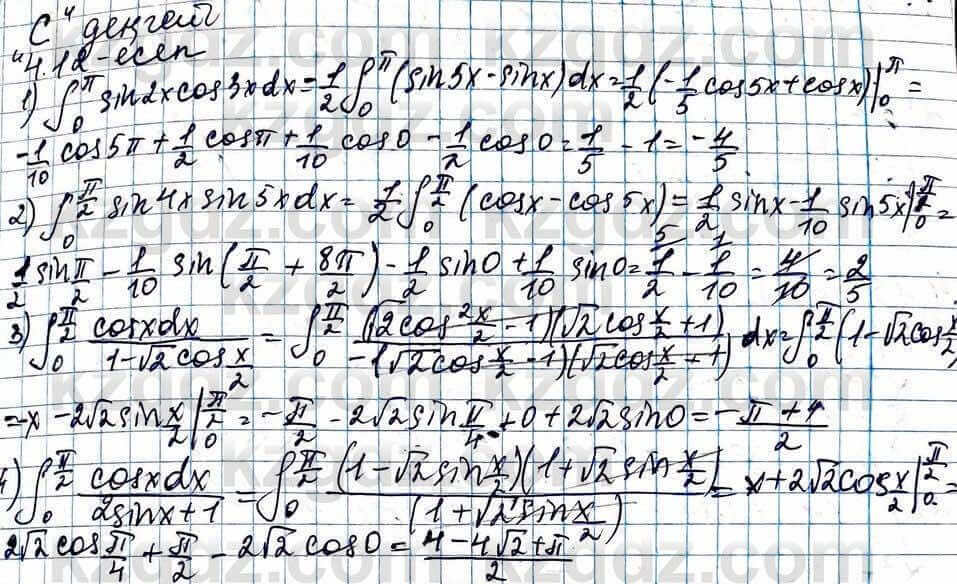 "С" деңгей
4.12-есеп
1) ∫₀^π sin2xcos3xdx = 1/2 ∫₀^π (sin5x - sinx)dx = 1/2 (-1/5 cos5x + cosx)|₀^π =
-1/10 cos5π + 1/2 cosπ + 1/10 cos0 - 1/2 cos0 = 1/5 - 1 = -4/5
2) ∫₀^(π/2) sin4x sin5xdx = 1/2 ∫₀^(π/2) (cosx - cos5x) = 1/2 sinx - 1/10 sin5x|₀^(π/2) =
1/2 sin π/2 - 1/10 sin(π/2 + 8π/2) - 1/2 sin0 + 1/10 sin0 = 1/2 - 1/10 = 4/10 = 2/5
3) ∫₀^(π/2) cosxdx/(1-√2cos x/2) = ∫₀^(π/2) (√2cos x/2 - 1)(√2cos x/2 + 1)/(-(√2cos x/2 - 1)(√2cos x/2 + 1)) dx = ∫₀^(π/2) (1-√2cos x/2)
= -x - 2√2sin x/2|₀^(π/2) = -π/2 - 2√2sin π/4 + 0 + 2√2sin0 = -(π+4)/2
4) ∫₀^(π/2) cosxdx/(2sinx+1) = ∫₀^(π/2) (1-√2sin x/2)(1+√2sin x/2)/(1+√2sin x/2) = x + 2√2cos x/2|₀^(π/2) =
2√2cos π/4 + π/2 - 2√2cos0 = (4-4√2+π)/2